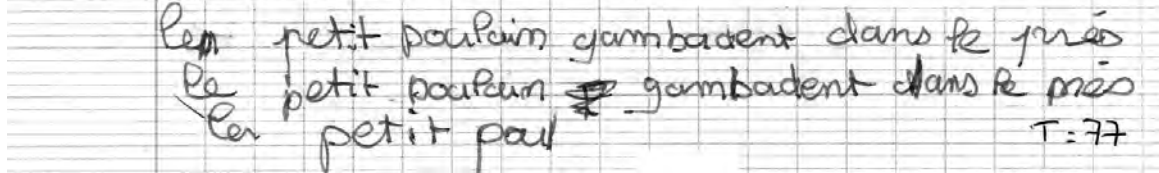 les petit poulain gambadent dans le prés
le petit poulain gambadent dans le prés
les petit poul
T = 77